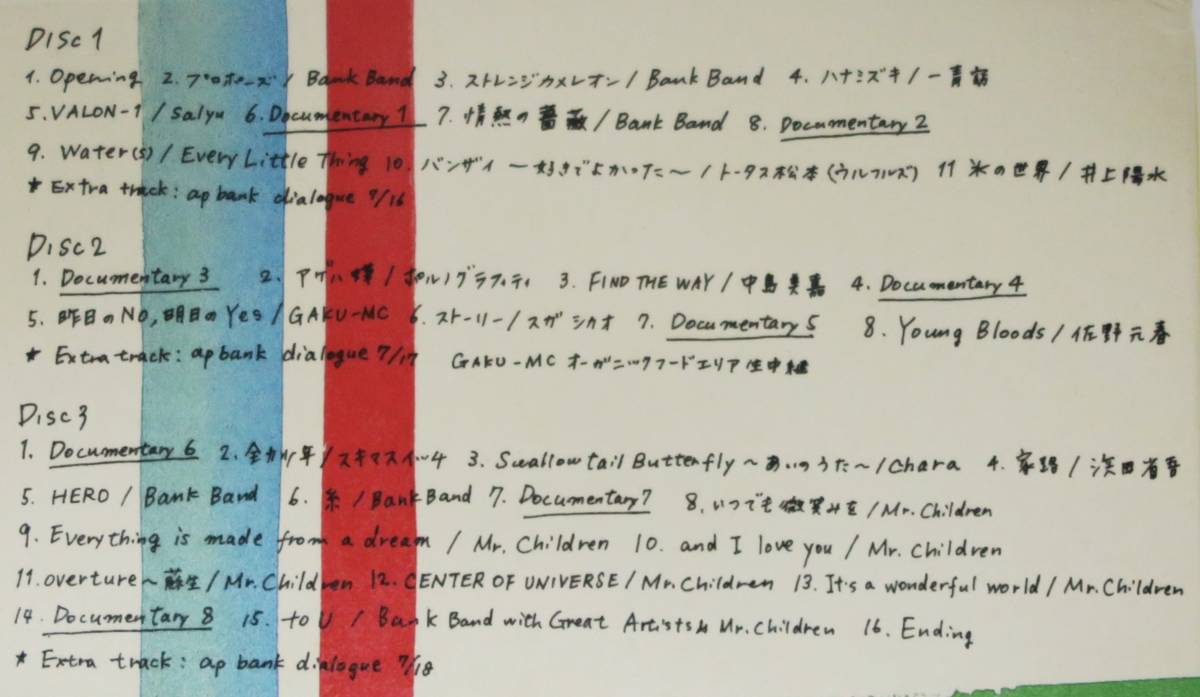 Disc 1
1. Opening 2. プロポーズ / Bank Band 3. ストレンジカメレオン / Bank Band 4. ハナミズキ / 一青窈
5. VALON-1 / Salyu 6. Documentary 1 7. 情熱の薔薇 / Bank Band 8. Documentary 2
9. Water(s) / Every Little Thing 10. バンザイ 〜好きでよかった〜 / トータス松本 (ウルフルズ) 11 氷の世界 / 井上陽水
★ Extra track: ap bank dialogue 7/16
Disc 2
1. Documentary 3 2. アゲハ蝶 / ポルノグラフィティ 3. FIND THE WAY / 中島美嘉 4. Documentary 4
5. 昨日のNo, 明日のYes / GAKU-MC 6. ストーリー / スガ シカオ 7. Documentary 5 8. Young Bloods / 佐野元春
★ Extra track: ap bank dialogue 7/17 GAKU-MC オーガニックフードエリア生中継
Disc 3
1. Documentary 6 2. 全力少年 / スキマスイッチ 3. Swallowtail Butterfly 〜あいのうた〜 / Chara 4. 家路 / 浜田省吾
5. HERO / Bank Band 6. 糸 / Bank Band 7. Documentary 7 8. いつでも微笑みを / Mr. Children
9. Everything is made from a dream / Mr. Children 10. and I love you / Mr. Children
11. overture〜蘇生 / Mr. Children 12. CENTER OF UNIVERSE / Mr. Children 13. It's a wonderful world / Mr. Children
14. Documentary 8 15. to U / Bank Band with Great Artists & Mr. Children 16. Ending
★ Extra track: ap bank dialogue 7/18